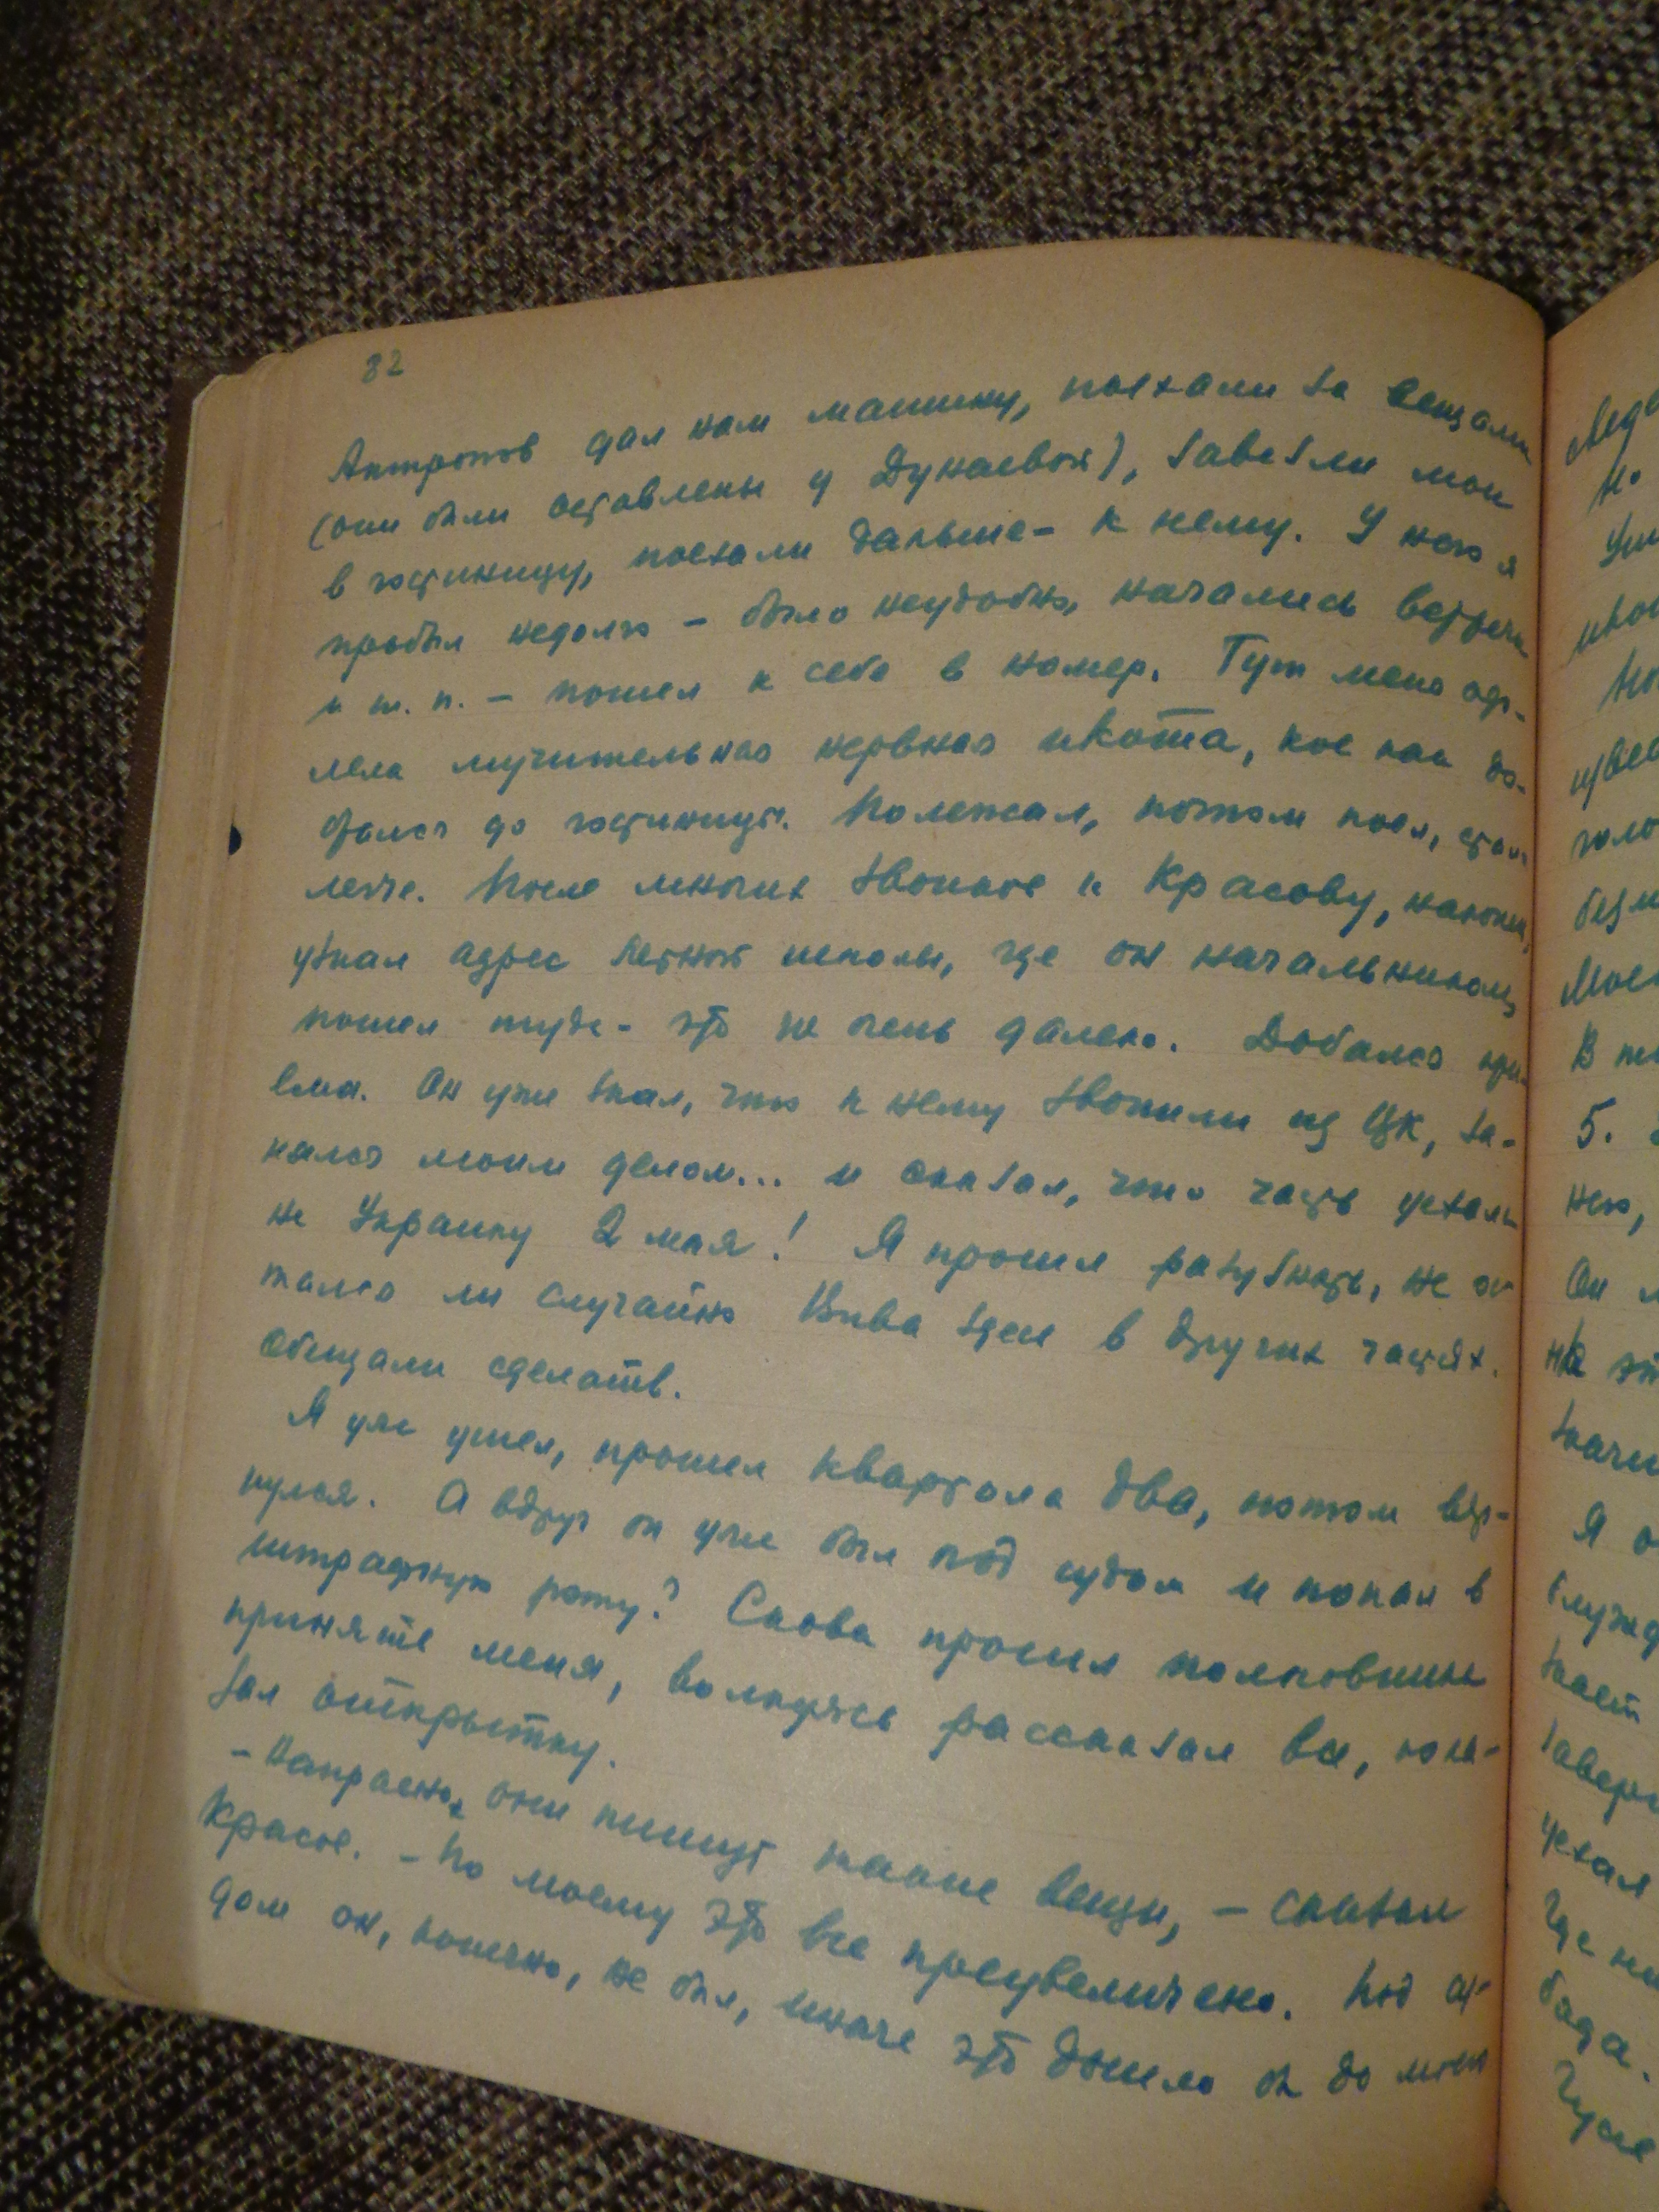 82
Антропов дал нам машину, поехали за вещами
(они были оставлены у Дунаевой), завезли мои
в гостиницу, поехали дальше - к нему. У него я
пробыл недолго - было неудобно, начались встречи
и т. п. - пошел к себе в номер. Тут меня одо-
лела мучительная нервная икота, кое как до-
брался до гостиницы. Полежал, потом поел, стало
легче. После многих звонков к Красову, наконец,
узнал адрес летной школы, где он начальником,
пошел туда - это не очень далеко. Добился при-
ема. Он уже знал, что к нему звонили из ЦК, за-
нялся моим делом... и сказал, что часть уехала
на Украину 2 мая! Я просил разузнать, не ос-
тался ли случайно Вива здесь в других частях.
Обещали сделать.
Я уже ушел, прошел квартала два, потом вер-
нулся. А вдруг он уже был под судом и попал в
штрафную роту? Снова просил полковника
принять меня, волнуясь рассказал все, пока-
зал открытку.
- Напрасно, они пишут такие вещи, - сказал
Красов. - По моему это все преувеличено. Под су-
дом он, конечно, не был, иначе это дошло бы до меня
5.